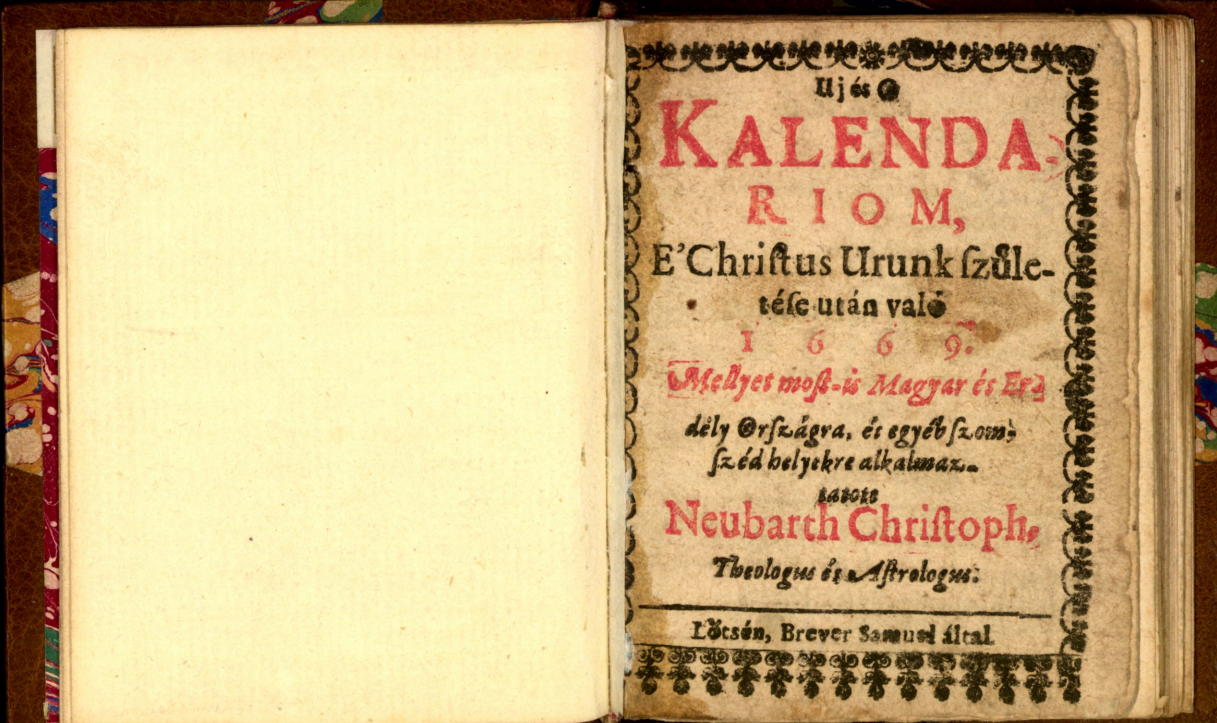 Uj és O
KALENDA-
RIOM,
E'Chriſtus Urunk ſzůle-
téſe után való
1 6 6 9.
Mellyet moſt-is Magyar és Er-
dély Orſzágra, és egyéb ſzom-
ſzéd helyekre alkalmaz-
tatott
Neubarth Chriſtoph,
Theologus és Aſtrologus.
Lőtsén, Brever Samuel által